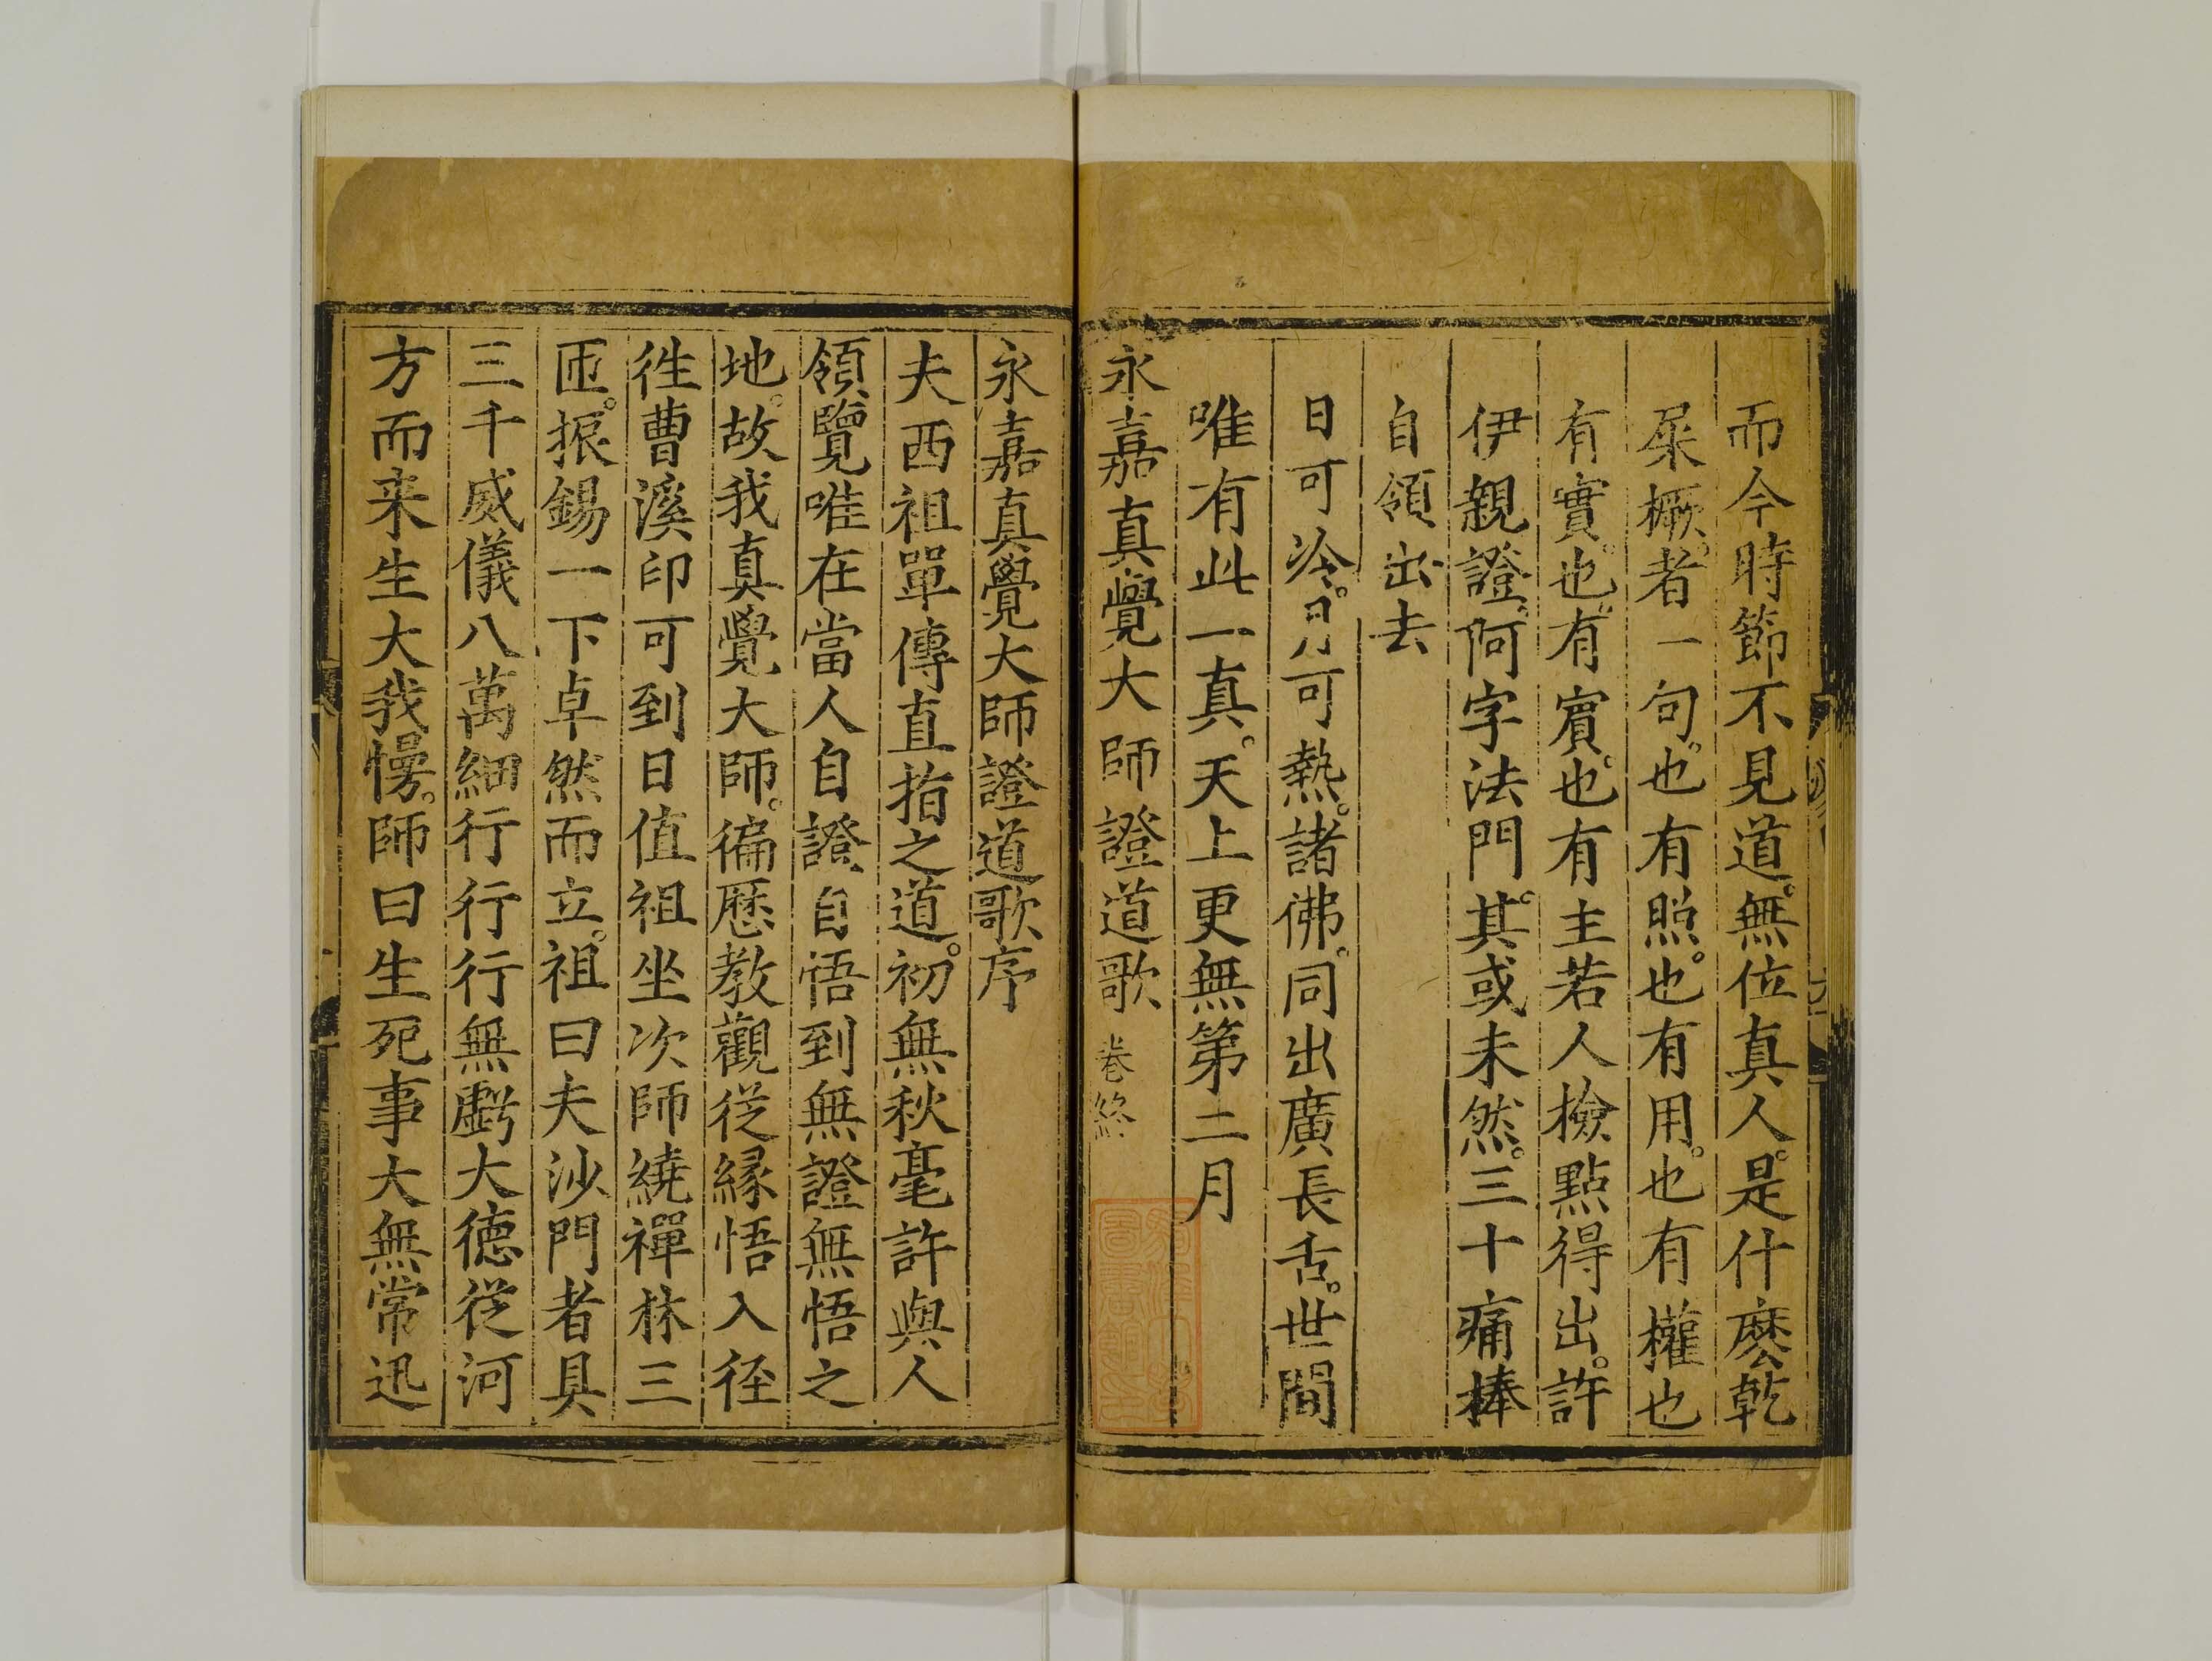 而今時節不見道。無位真人。是什麽乾
屎橛。者一句也。也有照。也有用。也有權也
有實。也有賓。也有主若人撿點得出。許
伊親證。阿字法門。其或未然。三十痛棒
自領出去
日可冷。月可熱。諸佛。同出廣長舌。世間
唯有此一真。天上更無第二月
永嘉真覺大師證道歌 卷終
永嘉真覺大師證道歌序
夫西祖單傳直指之道。初無秋毫許與人
領覽唯在當人自證自悟到無證無悟之
地。故我真覺大師。徧歷教觀從緣悟入徑
徃曹溪印可到日值祖坐次師繞禪床三
匝。振錫一下卓然而立。祖曰夫沙門者具
三千威儀八萬細行行行無虧大德從河
方而来生大我慢。師曰生死事大無常迅